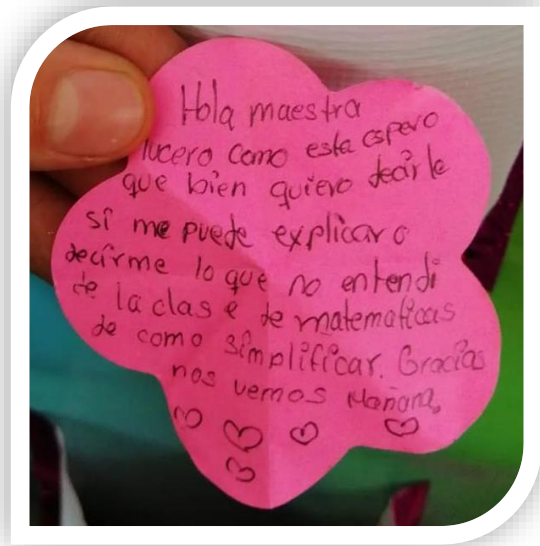 Hola maestra
lucero como esta espero
que bien quiero decirle
si me puede explicar o
decirme lo que no entendi
de la clase de matematicas
de como simplificar. Gracias
nos vemos Mañana.